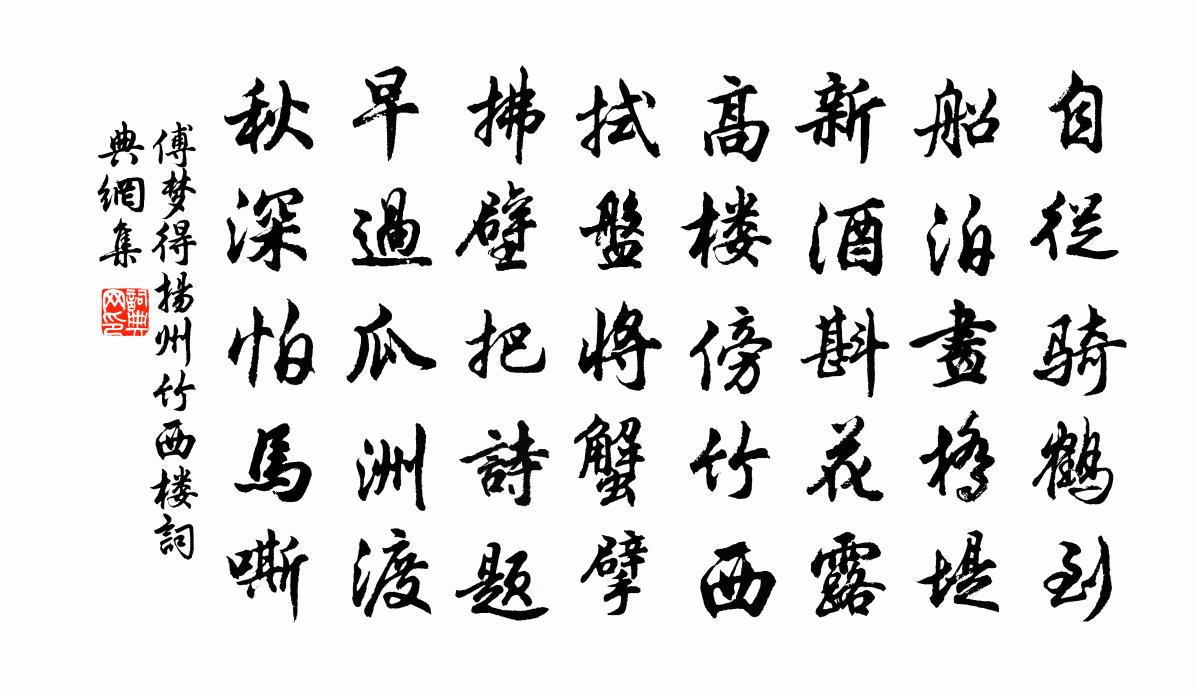 自從骑鶴到
船泊畫橋堤
新酒斟花露
高楼傍竹西
拭盤將蟹擘
拂壁把詩题
早過瓜洲渡
秋深怕馬嘶
傅梦得揚州竹西楼詞
典網集
詞典
网印